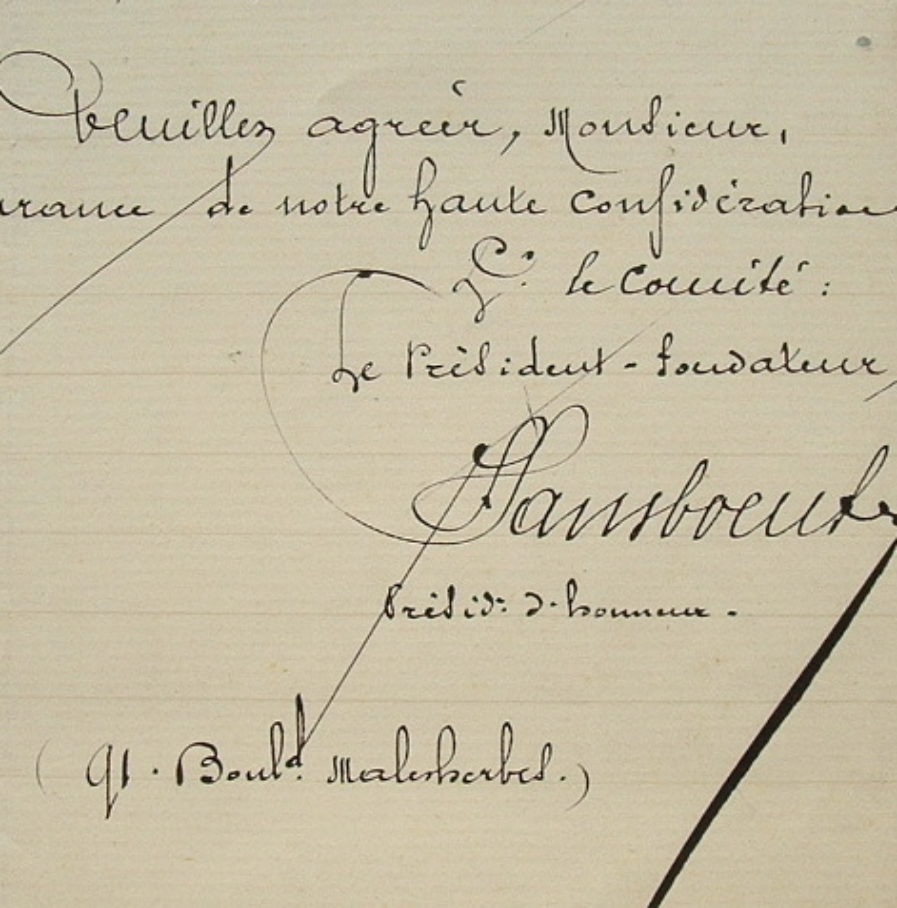 Veuillez agréer, Monsieur,
urance de notre haute considération
P. le Comité :
Le Président - fondateur
Sansboeuf
Présidt d'honneur -
( 91 . Bould Malesherbes. )